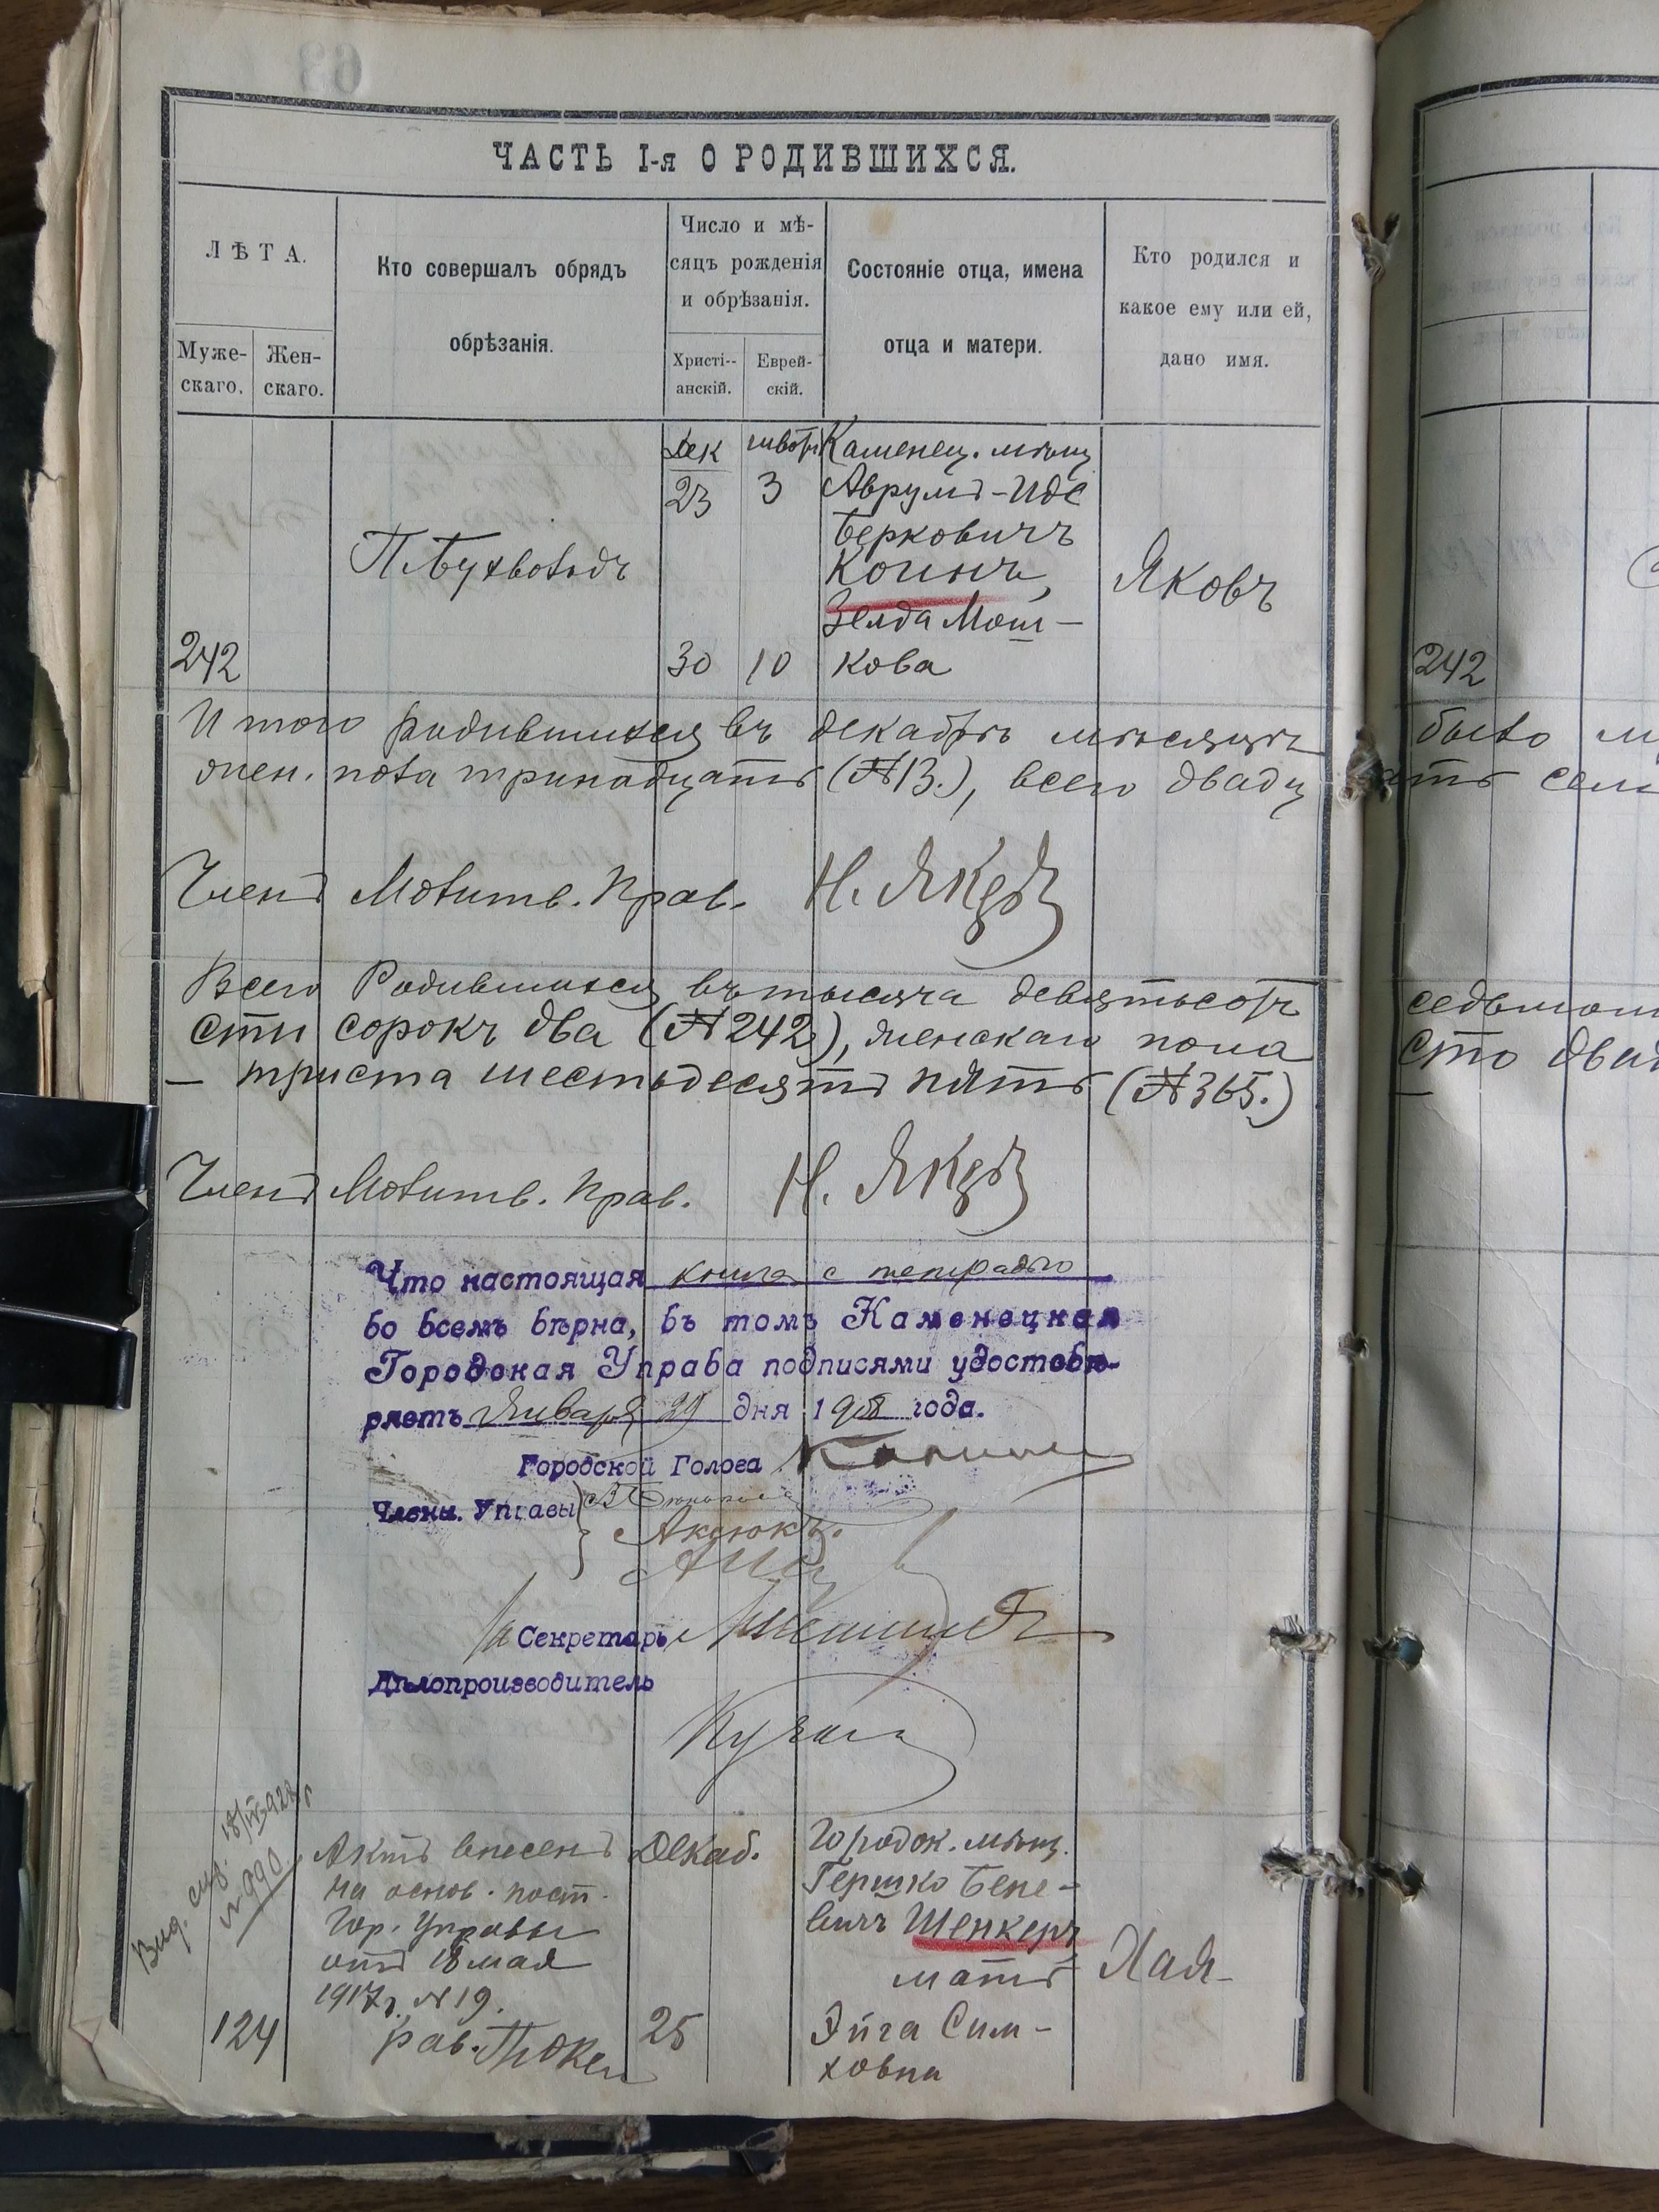 ЧАСТЬ I-я О РОДИВШИХСЯ.
ЛѢТА.
Муже-
скаго.
Жен-
скаго.
Кто совершалъ обрядъ
обрѣзанія.
Число и мѣ-
сяцъ рожденія
и обрѣзанія.
Христі--
анскій.
Еврей-
скій.
Состояніе отца, имена
отца и матери.
Кто родился и
какое ему или ей,
дано имя.
242
П. Бухвольдъ
Дек
23
30
3
10
Каменец. мѣщ
Аврумъ-Иде
Берковичъ
Коинъ,
Зелда Мош-
кова
Яковъ
242
Итого родившихся въ декабрѣ мѣсяцѣ было
жен. пола тринадцать (№13.), всего двадцать
Членъ Молитв. Прав. Н. Якръ
Всего Родившихся въ тысяча девятьсотъ седьмом
сти сорокъ два (№242), женскаго пола сто двад
— триста шестьдесятъ пять (№365.)
Членъ Молитв. Прав. Н. Якръ
Что настоящая книга с тетрадью
во всемъ вѣрна, въ томъ Каменецкая
Городская Управа подписями удостовѣ-
ряетъ Января 29 дня 1908 года.
Городской Голова
Члены. Управы
Аксюкъ.
Секретарь
Дѣлопроизводитель
Выд. 18/IV 928 г
№990.
124
Актъ внесенъ
на основ. пост.
Гор. Управы
отъ 18 мая
1917г. №19.
рав.
Декаб.
25
Городок. мѣщ.
Гершко Бене-
вичъ Шенкеръ
мать
Эйга Сим-
ховна
Хая-